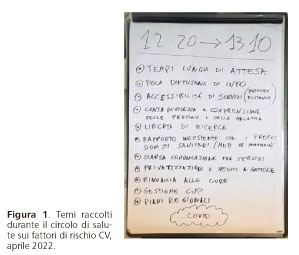 12:20 → 13:10
TEMPI LUNGHI DI ATTESA
POCA DIFFUSIONE DI INFO
ACCESSIBILITÀ DI SERVIZI
CONSAPEVOLEZZA E COMPRENSIONE
DELLE PERSONE E DELLA MALATTIA
LIBERTÀ DI RICERCA
RAPPORTO INESISTENTE CON I PROFES
SIONISTI SANITARI (MED
SCARSA COMUNICAZIONE TRA SERVIZI
PRIVATIZZAZIONE E GESTIONE
RINUNCIA ALLE CURE
GESTIONE CUP
PIANI REGIONALI
COVID
Figura 1. Temi raccolti
durante il circolo di salu-
te sui fattori di rischio CV,
aprile 2022.